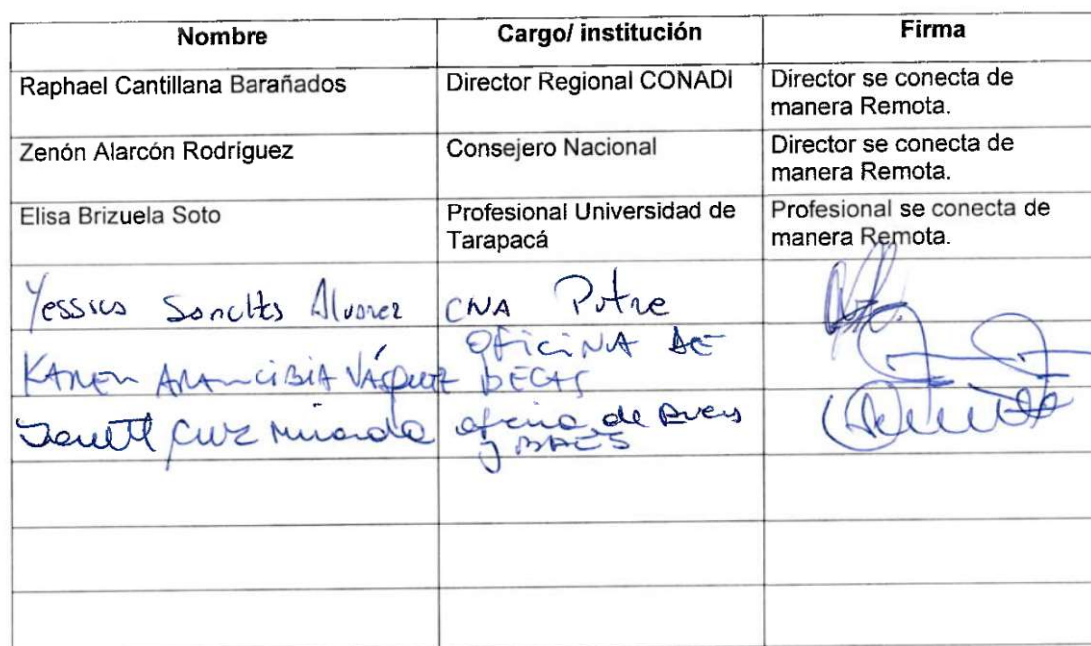 Nombre Cargo/ institución Firma
Raphael Cantillana Barañados Director Regional CONADI Director se conecta de
manera Remota.
Zenón Alarcón Rodríguez Consejero Nacional Director se conecta de
manera Remota.
Elisa Brizuela Soto Profesional Universidad de Profesional se conecta de
Tarapacá manera Remota.
Alvarez CNA Putre
KAREN ARANCIBIA VÁSQUEZ OFICINA DE
BECAS
CRUZ Miranda oficina de
y